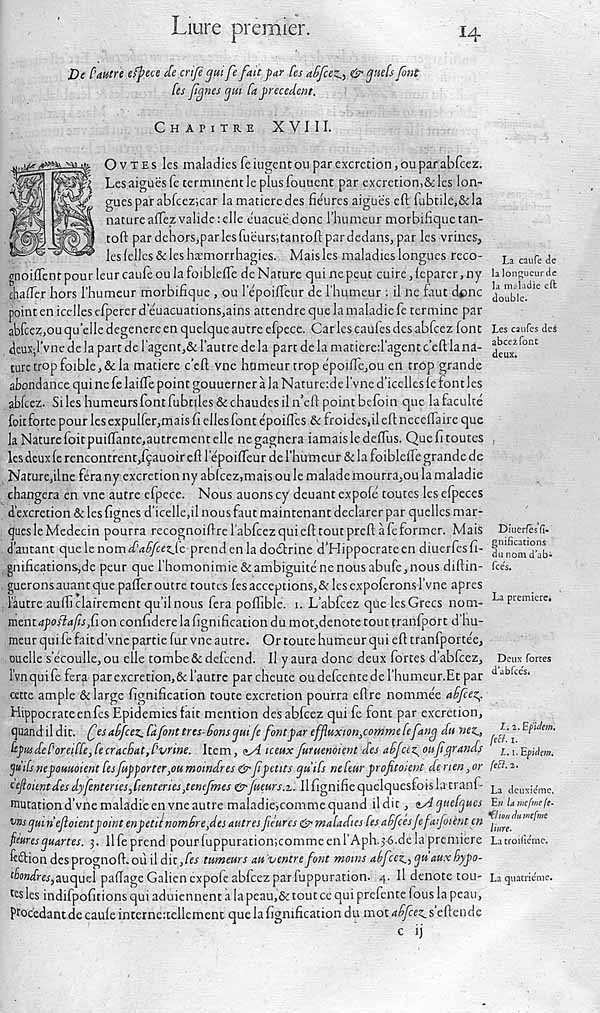 Liure premier. 14
De l'autre espece de crise qui se fait par les abscez, & quels sont
les signes qui la precedent.
CHAPITRE XVIII.
TOVTES les maladies se iugent ou par excretion, ou par abscez.
Les aiguës se terminent le plus souuent par excretion, & les lon-
gues par abscez; car la matiere des fiéures aiguës est subtile, & la
nature assez valide: elle éuacuë donc l'humeur morbifique tan-
tost par dehors, par les sueürs; tantost par dedans, par les vrines,
les selles & les hæmorrhagies. Mais les maladies longues reco-
gnoissent pour leur cause ou la foiblesse de Nature qui ne peut cuire, separer, ny
chasser hors l'humeur morbifique, ou l'époisseur de l'humeur: il ne faut donc
point en icelles esperer d'éuacuations, ains attendre que la maladie se termine par
abscez, ou qu'elle degenere en quelque autre espece. Car les causes des abscez sont
deux; l'vne de la part de l'agent, & l'autre de la part de la matiere: l'agent c'est la na-
ture trop foible, & la matiere c'est vne humeur trop époisse, ou en trop grande
abondance qui ne se laisse point gouuerner à la Nature: de l'vne d'icelles se font les
abscez. Si les humeurs sont subtiles & chaudes il n'est point besoin que la faculté
soit forte pour les expulser, mais si elles sont époisses & froides, il est necessaire que
la Nature soit puissante, autrement elle ne gagnera iamais le dessus. Que si toutes
les deux se rencontrent, sçauoir est l'époisseur de l'humeur & la foiblesse grande de
Nature, il ne fera ny excretion ny abscez, mais ou le malade mourra, ou la maladie
changera en vne autre espece. Nous auons cy deuant exposé toutes les especes
d'excretion & les signes d'icelle, il nous faut maintenant declarer par quelles mar-
ques le Medecin pourra recognoistre l'abscez qui est tout prest à se former. Mais
d'autant que le nom d'abscez se prend en la doctrine d'Hippocrate en diuerses si-
gnifications, de peur que l'homonimie & ambiguité ne nous abuse, nous distin-
guerons auant que passer outre toutes ses acceptions, & les exposerons l'vne apres
l'autre aussi clairement qu'il nous sera possible. 1. L'abscez que les Grecs nom-
ment apostasis, si on considere la signification du mot, denote tout transport d'hu-
meur qui se fait d'vne partie sur vne autre. Or toute humeur qui est transportée,
ou elle s'écoulle, ou elle tombe & descend. Il y aura donc deux sortes d'abscez,
l'vn qui se fera par excretion, & l'autre par cheute ou descente de l'humeur. Et par
cette ample & large signification toute excretion pourra estre nommée abscez.
Hippocrate en ses Epidemies fait mention des abscez qui se font par excretion,
quand il dit. Ces abscez là sont tres-bons qui se font par effluxion, comme le sang du nez,
le pus de l'oreille, le crachat, l'vrine. Item, A iceux suruenoient des abscez ou si grands
qu'ils ne pouuoient les supporter, ou moindres & si petits qu'ils ne leur profitoient de rien, or
c'estoient des dysenteries, lienteries, tenesmes & sueurs. 2. Il signifie quelquesfois la trans-
mutation d'vne maladie en vne autre maladie, comme quand il dit, A quelques
vns qui n'estoient point en petit nombre, des autres fieures & maladies les abscés se faisoient en
fieures quartes. 3. Il se prend pour suppuration; comme en l'Aph. 36. de la premiere
section des prognost. où il dit, les tumeurs au ventre font moins abscez, qu'aux hypo-
chondres, auquel passage Galien expose abscez par suppuration. 4. Il denote tou-
tes les indispositions qui aduiennent à la peau, & tout ce qui presente sous la peau,
procedant de cause interne: tellement que la signification du mot abscez s'estend e
c ij
La cause de
la longueur de
la maladie est
double.
Les causes des
abcez sont
deux.
Diuerses si-
gnifications
du nom d'ab-
scés.
La premiere.
Deux sortes
d'abscés.
L. 2. Epidem.
sect. 1.
L. 1. Epidem.
sect. 2.
La deuxiéme.
En la mesme se-
ction du mesme
liure.
La troisiéme.
La quatriéme.